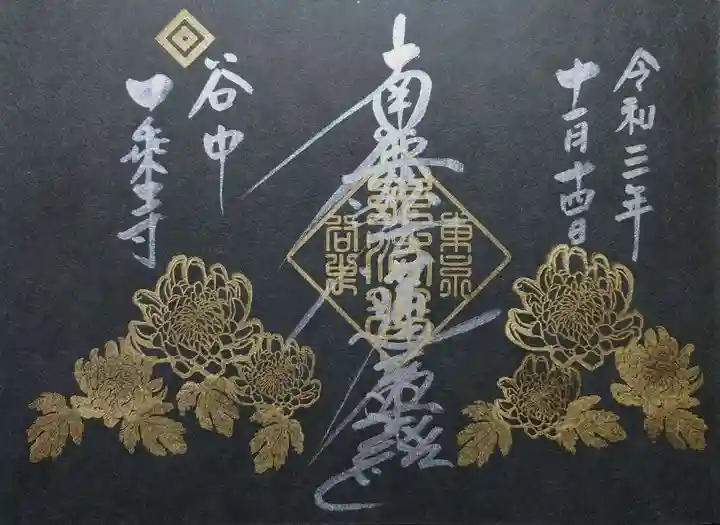 令和三年
十一月十四日
南無妙法蓮華経
東京
谷中
谷中
一乗寺